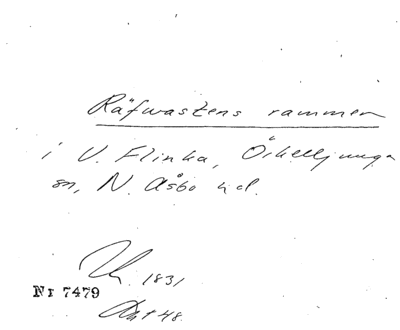 Räfwastens rammen
i V. Flinka, Örkelljunga
sn, N. Åsbo hd.
1831
Nr 7479